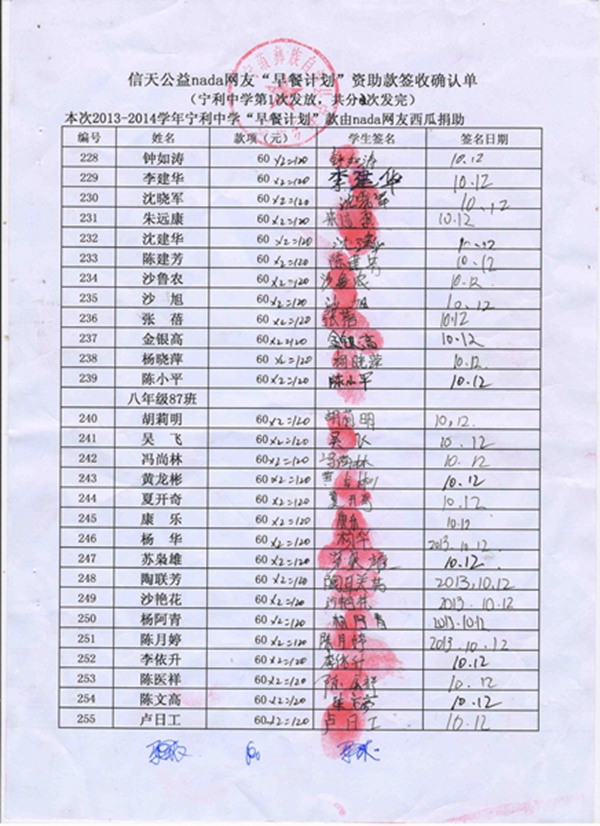 信天公益nada网友“早餐计划”资助款签收确认单
（宁利中学第1次发放，共分2次发完）
本次2013-2014学年宁利中学“早餐计划”款由nada网友西瓜捐助
编号 姓名 款项（元） 学生签名 签名日期
228 钟如涛 60 ×2=120 钟如涛 10.12
229 李建华 60 ×2=120 李建华 10.12
230 沈晓军 60 ×2=120 沈晓军 10.12
231 朱远康 60 ×2=120 10.12
232 沈建华 60 ×2=120 10.12
233 陈建芳 60 ×2=120 陈建芳 10.12
234 沙鲁农 60 ×2=120 沙鲁农 10.12
235 沙 旭 60 ×2=120 沙旭 10.12
236 张 蓓 60 ×2=120 张蓓 10.12
237 金银高 60 ×2=120 金银高 10.12
238 杨晓萍 60 ×2=120 杨晓萍 10.12
239 陈小平 60 ×2=120 陈小平 10.12
八年级87班
240 胡莉明 60 ×2=120 胡莉明 10.12.
241 吴 飞 60 ×2=120 吴飞 10.12
242 冯尚林 60 ×2=120 冯尚林 10.12
243 黄龙彬 60 ×2=120 10.12
244 夏开奇 60 ×2=120 夏开奇 10.12
245 康 乐 60 ×2=120 康乐 10.12
246 杨 华 60 ×2=120 杨华 2013.10.12
247 苏枭雄 60 ×2=120 10.12
248 陶联芳 60 ×2=120 2013,10,12
249 沙艳花 60 ×2=120 2013.10.12
250 杨阿青 60 ×2=120 杨阿青 2013.10.12
251 陈月婷 60 ×2=120 陈月婷 2013.10.12
252 李依升 60 ×2=120 李依升 10.12
253 陈医祥 60 ×2=120 10.12
254 陈文高 60 ×2=120 10.12
255 卢日工 60 ×2=120 卢日工 10.12